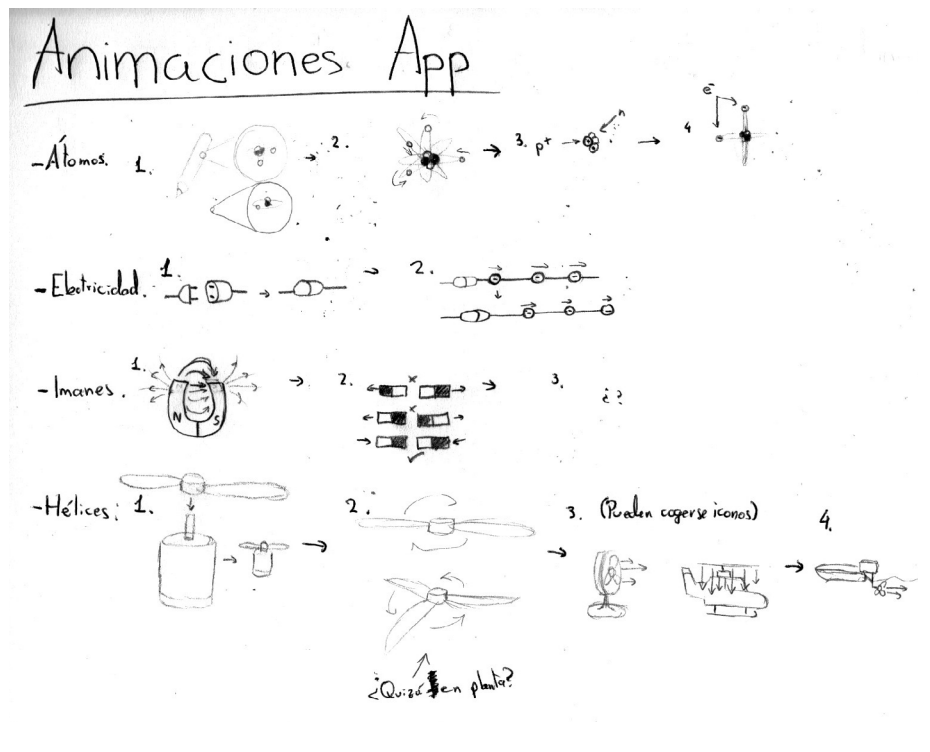 Animaciones App
-Átomos. 1. 2. 3. p+ n 4 e-
-Electricidad. 1. 2.
-Imanes. 1. N S 2. 3. ¿?
-Hélices: 1. 2. 3. (Pueden cogerse iconos) 4.
¿Quizá en planta?